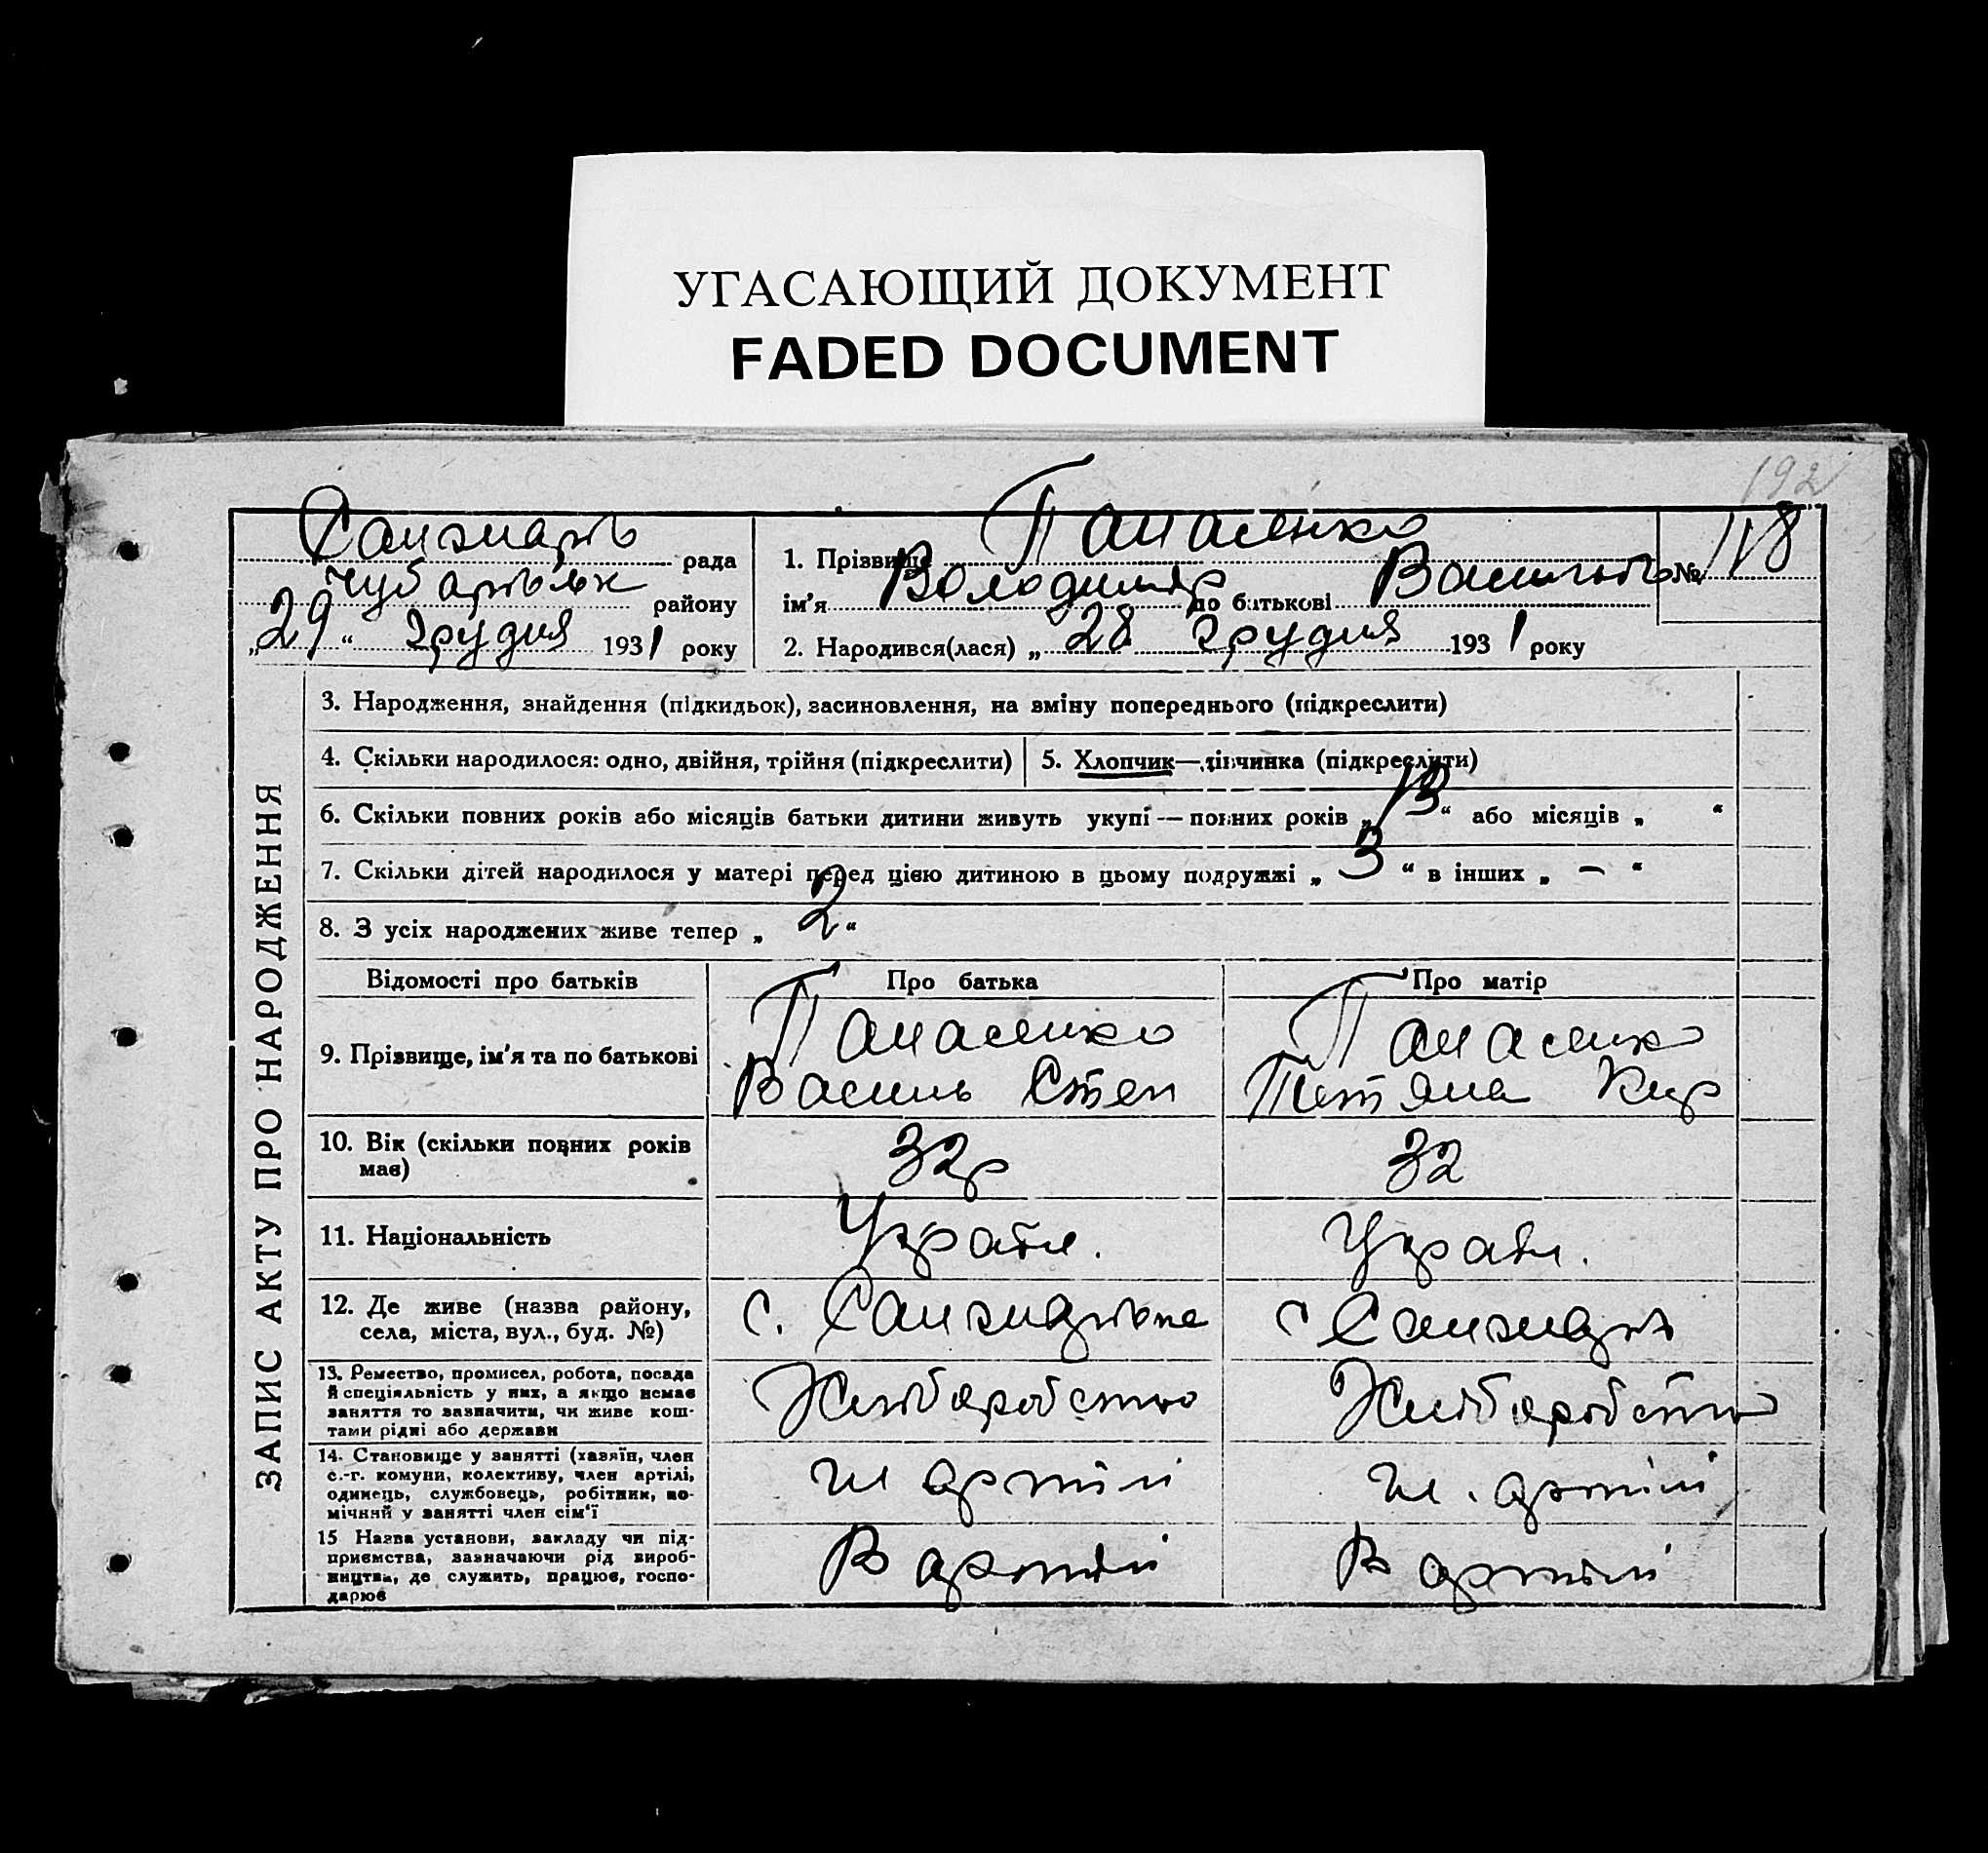 УГАСАЮЩИЙ ДОКУМЕНТ
FADED DOCUMENT
192
рада
району
„29“ грудня 1931 року
1. Прізвище Панасенко
ім'я Володимир по батькові
№ 118
2. Народився(лася) „28 грудня 1931 року
ЗАПИС АКТУ ПРО НАРОДЖЕННЯ
3. Народження, знайдення (підкидьок), засиновлення, на зміну попереднього (підкреслити)
4. Скільки народилося: одно, двійня, трійня (підкреслити)
5. Хлопчик—дівчинка (підкреслити)
6. Скільки повних років або місяців батьки дитини живуть укупі — повних років „13“ або місяців „ “
7. Скільки дітей народилося у матері перед цією дитиною в цьому подружжі „3“ в інших „ — “
8. З усіх народжених живе тепер „2“
Відомості про батьків
Про батька
Про матір
9. Прізвище, ім'я та по батькові
Панасенко
Василь Степ
Панасенко
Тетяна Кир
10. Вік (скільки повних років
має)
32р
32
11. Національність
Україн.
Україн.
12. Де живе (назва району,
села, міста, вул., буд. №)
с.
с
13. Ремество, промисел, робота, посада
й спеціяльність у них, а якщо немає
заняття то зазначити, чи живе кош-
тами рідні або держави
Хліборобство
Хліборобство
14. Становище у занятті (хазяїн, член
с.-г. комуни, колективу, член артілі,
одинець, службовець, робітник, по-
мічний у занятті член сім'ї
чл артілі
чл. артілі
15 Назва установи, закладу чи під-
приємства, зазначаючи рід вироб-
ництва, де служить, працює, госпо-
дарює
В артілі
В артілі